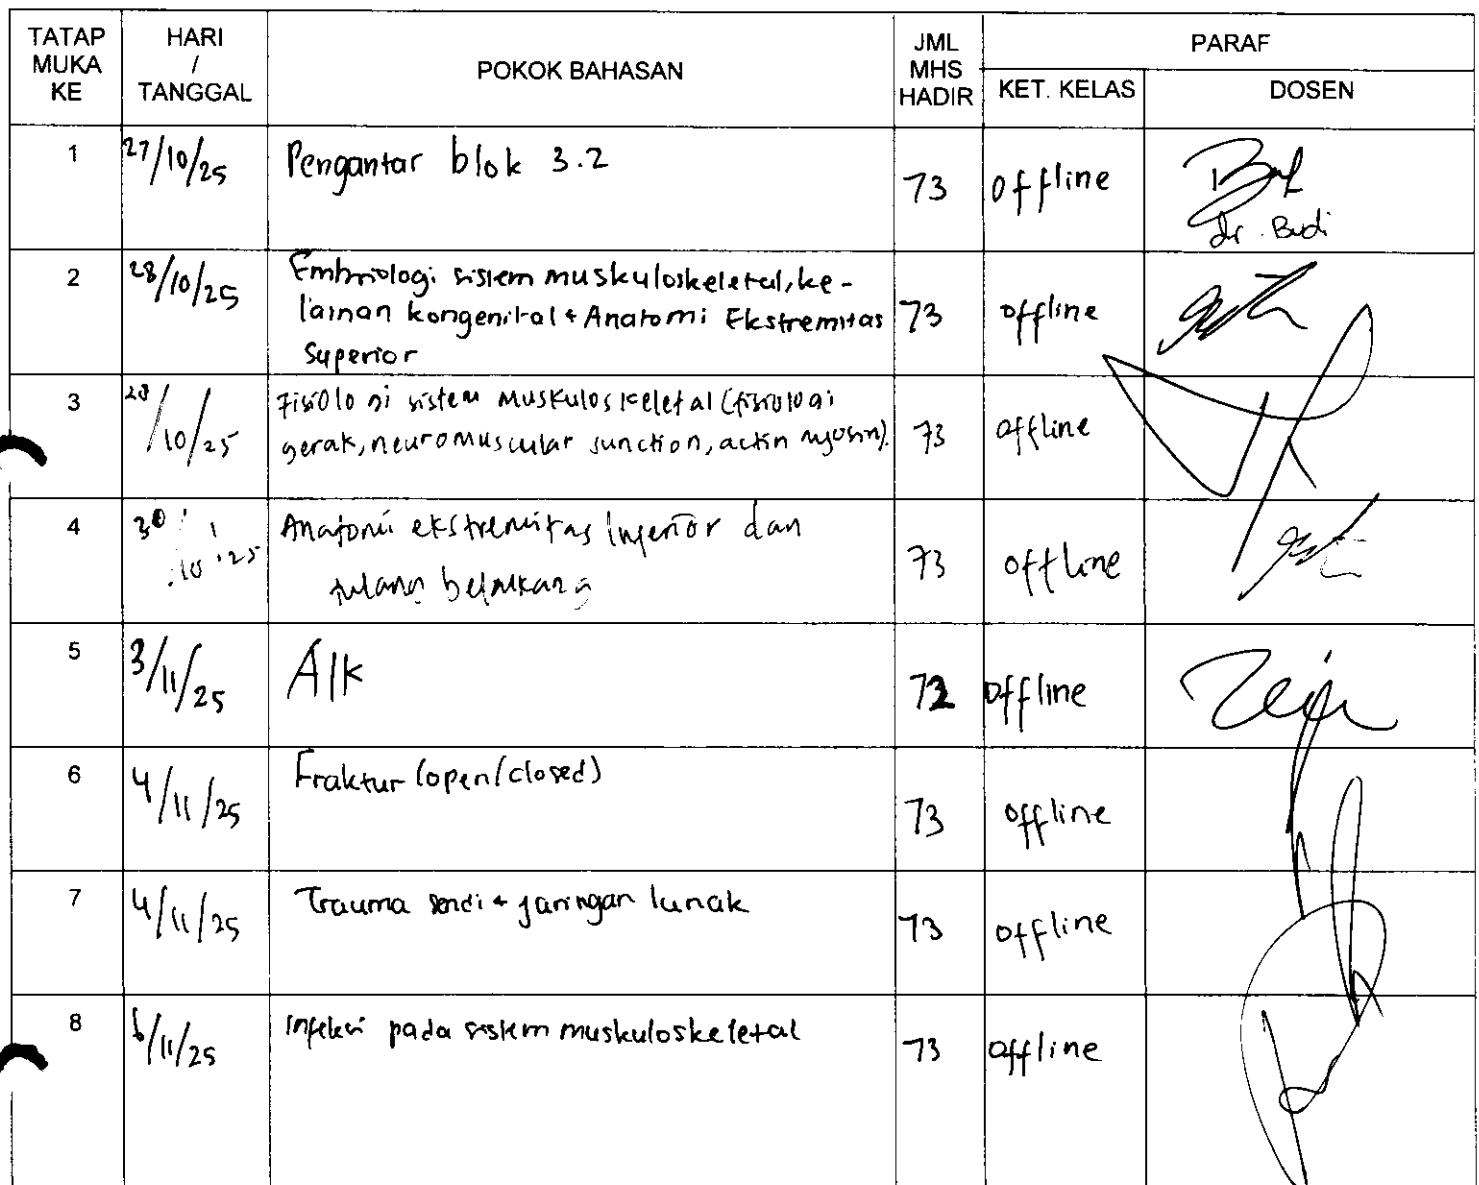 TATAP MUKA KE
HARI / TANGGAL
POKOK BAHASAN
JML MHS HADIR
PARAF
KET. KELAS
DOSEN
1 27/10/25 Pengantar blok 3.2 73 offline
dr. Budi
2 28/10/25 Embriologi sistem muskuloskeletal, ke-
lainan kongenital + Anatomi Ekstremitas 73 offline
Superior
3 28/10/25 Fisiologi sistem muskuloskeletal (fisiologi
gerak, neuromuscular junction, actin myosin). 73 offline
4 30/10/25 Anatomi ekstremitas Inferior dan
tulang belakang 73 offline
5 3/11/25 AIK 72 offline
6 4/11/25 Fraktur (open/closed) 73 offline
7 4/11/25 Trauma sendi + jaringan lunak 73 offline
8 6/11/25 Infeksi pada sistem muskuloskeletal 73 offline